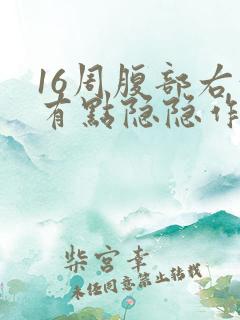 16周腹部右
有點隐隐作
柴宫幸
未经同意禁止转载